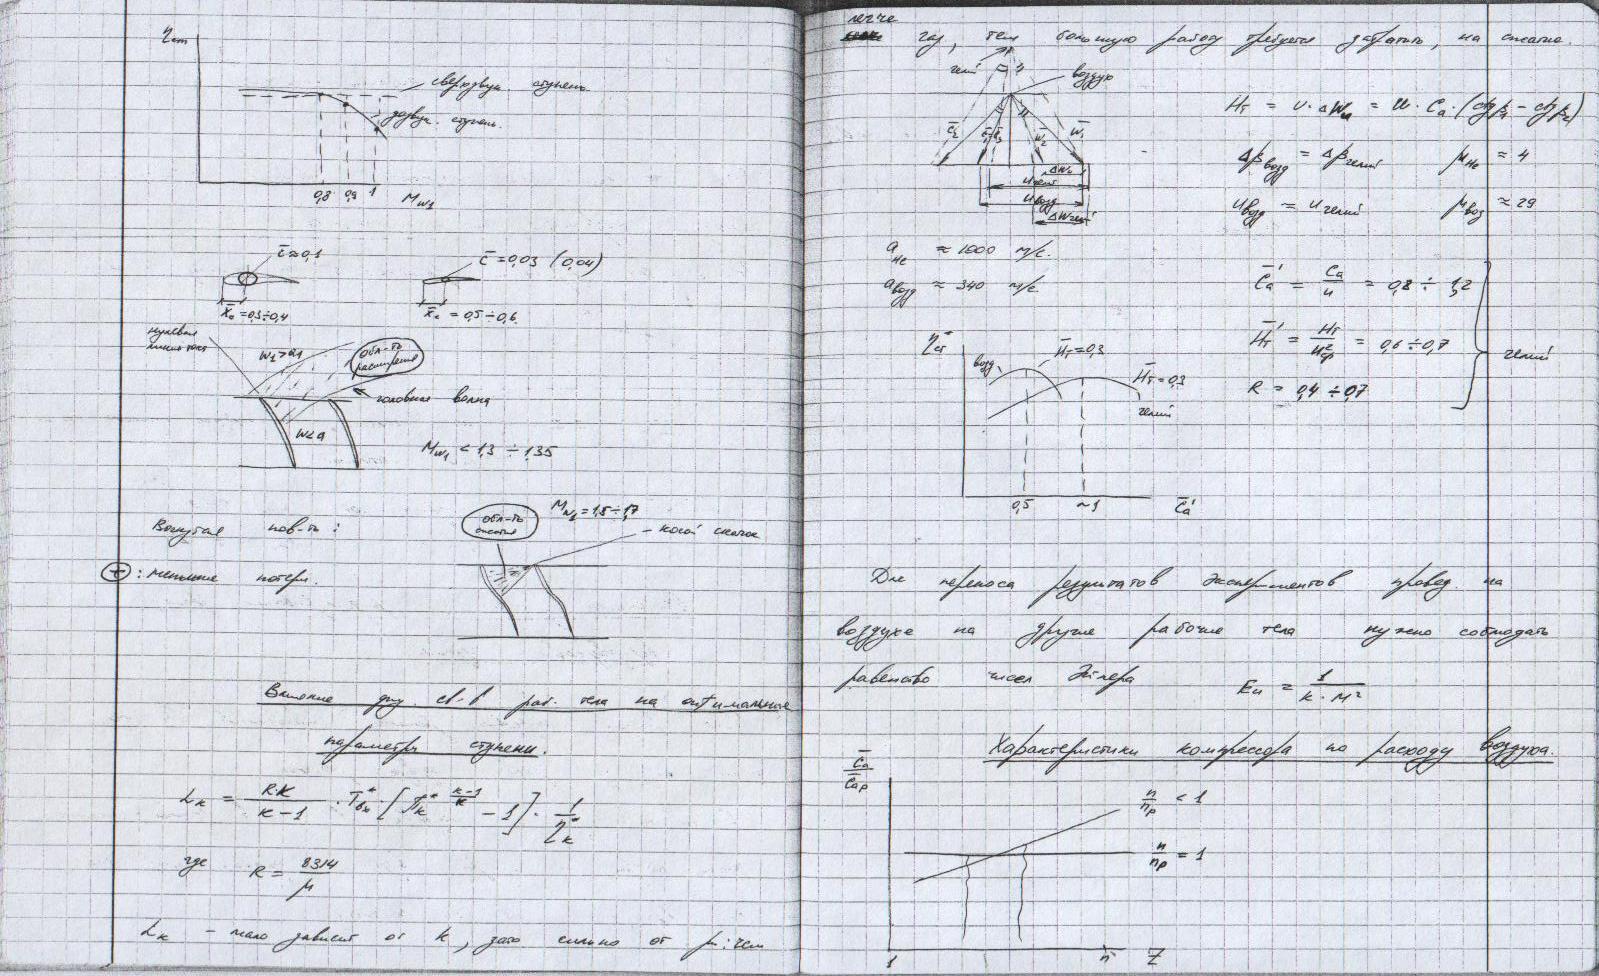 ηст
сверхзвук. ступень
дозвук. ступень
0,8 0,9 1 Mw1
c̄≈0,1
c̄=0,03 (0,04)
x̄c=0,3÷0,4
x̄c=0,5÷0,6
нулевая
линия тока
w1>a1
обл-ть
расширения
головная волна
w<a
Mw1 < 1,3 ÷ 1,35
Вогнутая пов-ть:
обл-ть
сжатия
Mw1=1,5÷1,7
косой скачок
⊕: меньшие потери.
Влияние физ. св-в раб. тела на оптимальные
параметры ступени.
Lк = RK/(K−1) · Tвх* · [πк*^((k−1)/k) − 1] · 1/ηк*
где R = 8314/μ
Lк – мало зависит от k, зато сильно от μ: чем
легче
газ, тем большую работу требуется затратить, на сжатие.
гелий
воздух
c̄2 w̄2 w̄1
ΔWu
Uгелий
Uвозд
ΔWгелий
Hт = U·ΔWu = U·Ca·(ctgβ1 − ctgβ2)
Δβвозд = Δβгелий μHe ≈ 4
Uвозд = Uгелий μвоз ≈ 29
aHe ≈ 1000 м/с.
aвозд ≈ 340 м/с.
C̄a' = Ca/u = 0,8 ÷ 1,2
H̄т' = Hт/Uср² = 0,6 ÷ 0,7
R = 0,4 ÷ 0,7
гелий
ηст*
возд.
H̄т=0,3
H̄т=0,3
гелий
0,5 ~1 C̄a'
Для переноса результатов экспериментов провед. на
воздухе на другие рабочие тела нужно соблюдать
равенство чисел Эйлера Eu = 1/(k·M²)
Характеристики компрессора по расходу воздуха.
C̄a/C̄ap
n/np < 1
n/np = 1
1 n Z